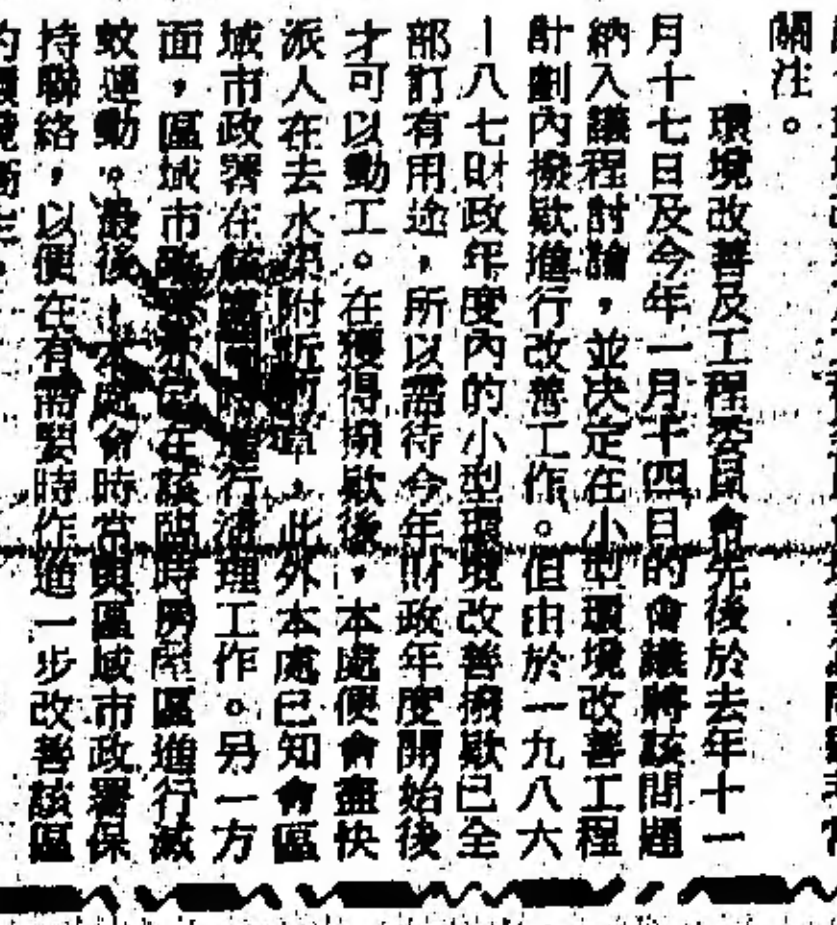 關注。
環境改善及工程委員會先後於去年十一
月十七日及今年一月十四日的會議將該問題
納入議程討論，並決定在小型環境改善工程
計劃內撥款進行改善工作。但由於一九八六
－八七財政年度內的小型環境改善撥款已全
部訂有用途，所以需待今年財政年度開始後
才可以動工。在獲得撥款後，本處便會盡快
派人在去水渠附近，此外本處已知會區
域市政署在該臨時進行清理工作。另一方
面，區域市在該臨時房屋區進行滅
蚊運動。最後，本處會時常與區域市政署保
持聯絡，以便在有需要時作進一步改善該區
的環境衛生。